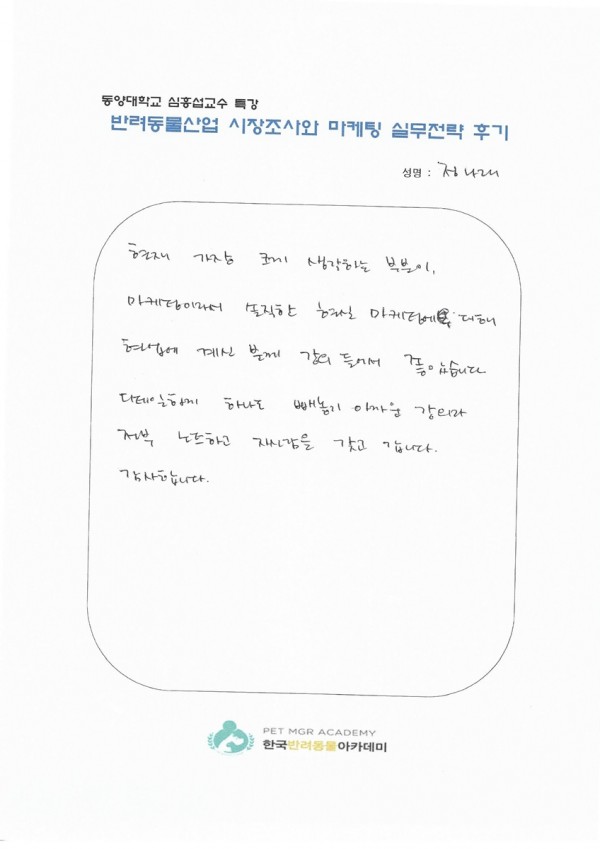 동양대학교 심흥섭교수 특강
반려동물산업 시장조사와 마케팅 실무전략 후기
성명 : 정나래
현재 가장 크게 생각하는 부분이,
마케팅이라서 솔직한 현실 마케팅에 대해
현업에 계신 분께 강의 들어서 좋았습니다
디테일하게 하나도 빼놓기 아까운 강의라
전부 노트하고 자신감을 갖고 갑니다.
감사합니다.
PET MGR ACADEMY
한국반려동물아카데미